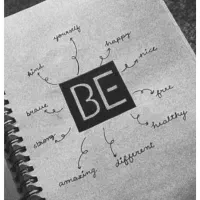 yourself
happy
kind
nice
brave
BE
free
strong
healthy
different
amazing